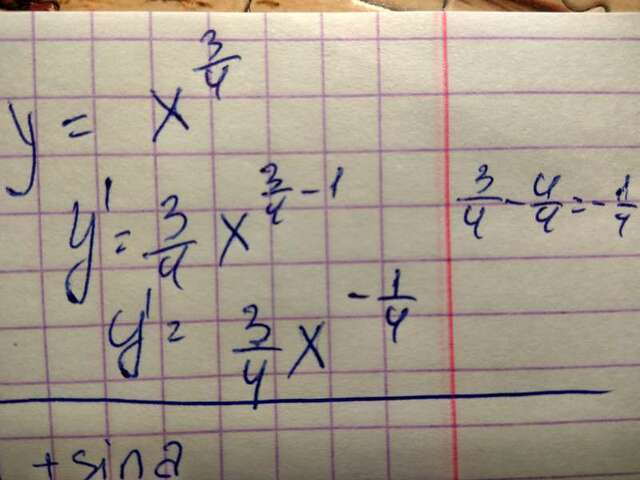 y = x^{3/4}
y' = 3/4 x^{3/4 - 1}
3/4 - 4/4 = - 1/4
y' = 3/4 x^{- 1/4}
+ sin a